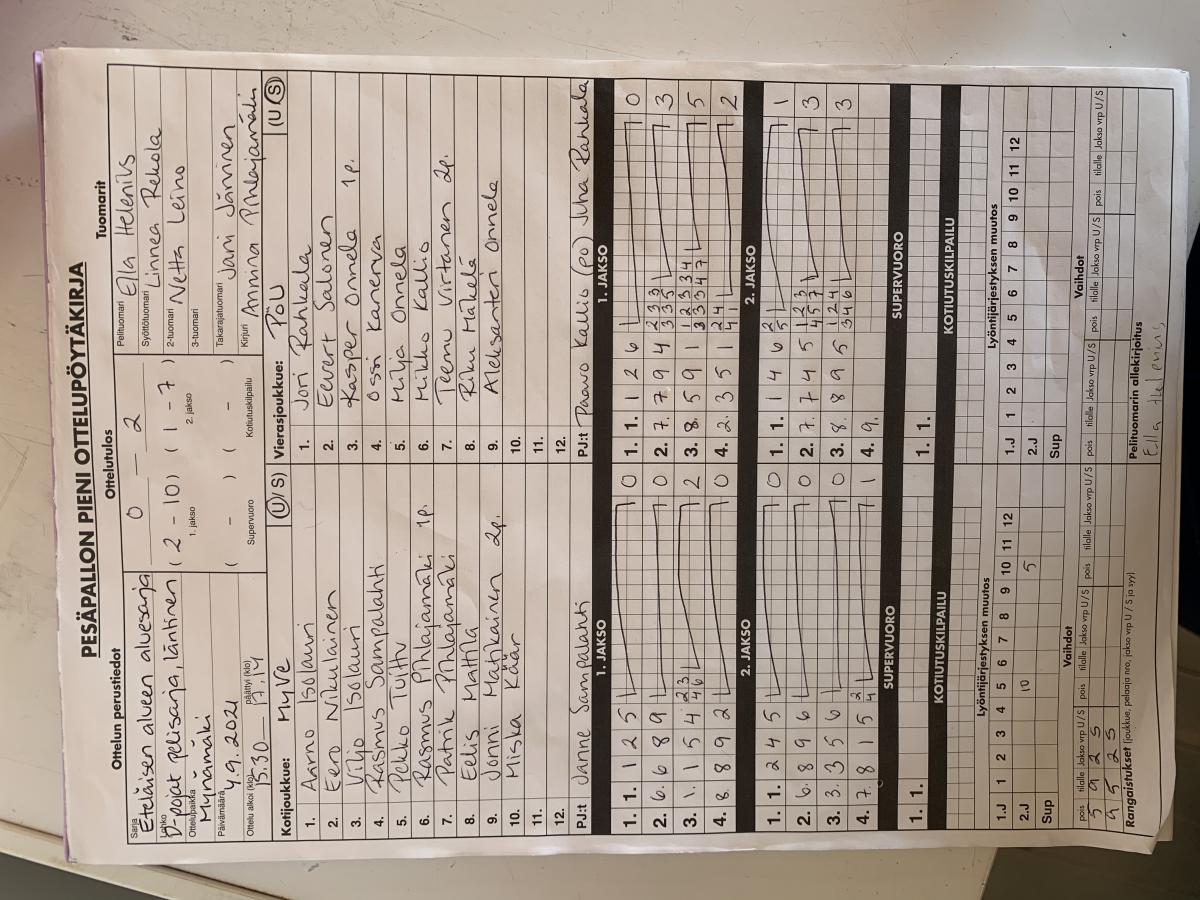 PESÄPALLON PIENI OTTELUPÖYTÄKIRJA
Ottelun perustiedot
Sarja
Eteläisen alueen aluesarja
Lohko
D-pojat pelisarja, läntinen
Ottelupaikka
Mynämäki
Päivämäärä
4.9.2021
Ottelu alkoi (klo) päättyi (klo)
15.30 — 17.14
Ottelutulos
0 — 2
( 2 - 10 ) ( 1 - 7 )
1. jakso 2. jakso
( - ) ( - )
Supervuoro Kotiutuskilpailu
Tuomarit
Pelituomari Ella Helenius
Syöttötuomari Linnea Rekola
2-tuomari Netta Leino
3-tuomari
Takarajatuomari Jani Jänninen
Kirjuri Annina Pihlajamäki
Kotijoukkue: MyVe (U/S)
1. Aarno Isolauri
2. Eero Nikulainen
3. Viljo Isolauri
4. Rasmus Sampalahti
5. Pekko Tuittu
6. Rasmus Pihlajamäki 1p.
7. Patrik Pihlajamäki
8. Eelis Mattila
9. Jonni Matikainen 2p.
10. Miska Käär
11.
12.
PJ:t Janne Sampalahti
Vierasjoukkue: PöU (U/S)
1. Joni Rahkala
2. Eevert Salonen
3. Kasper Onnela 1p.
4. Ossi Kanerva
5. Milja Onnela
6. Mikko Kallio
7. Teemu Virtanen 2p.
8. Riku Mäkelä
9. Aleksanteri Onnela
10.
11.
12.
PJ:t Paavo Kallio (PO) Juha Rahkala
1. JAKSO
1. 1. 1 2 5 0
2. 6. 6 8 9 0
3. 1. 1 5 4 2 4 3 6 2
4. 8. 8 9 2 0
2. JAKSO
1. 1. 2 4 5 0
2. 6. 8 9 6 0
3. 3. 3 5 6 0
4. 7. 8 1 5 2 4 1
SUPERVUORO
1. 1.
KOTIUTUSKILPAILU
1. JAKSO
1. 1. 1 2 6 0
2. 7. 7 9 4 2 3 3 3 3 5 3
3. 8. 5 9 1 5
4. 2. 3 5 1 2 4 4 1 2
2. JAKSO
1. 1. 1 4 6 2 5 1
2. 7. 7 4 5 1 4 2 5 3 7 3
3. 8. 8 9 5 1 3 2 4 4 6 3
4. 9.
SUPERVUORO
1. 1.
KOTIUTUSKILPAILU
Lyöntijärjestyksen muutos
1.J 1 2 3 4 5 6 7 8 9 10 11 12
2.J 10 5
Sup
Vaihdot
pois tilalle Jakso vrp U/S pois tilalle Jakso vrp U/S pois tilalle Jakso vrp U/S
5 9 2 5
9 5 2 5
Lyöntijärjestyksen muutos
1.J 1 2 3 4 5 6 7 8 9 10 11 12
2.J
Sup
Vaihdot
pois tilalle Jakso vrp U/S pois tilalle Jakso vrp U/S pois tilalle Jakso vrp U/S
Rangaistukset (joukkue, pelaaja nro, jakso vrp U / S ja syy)
Pelituomarin allekirjoitus
Ella Helenius